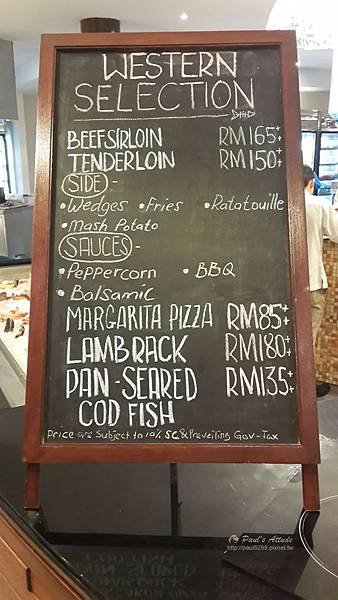 WESTERN
SELECTION
BEEF SIRLOIN RM165+
TENDERLOIN RM150+
SIDE -
• Wedges • Fries • Ratatouille
• Mash Potato
SAUCES -
• Peppercorn • BBQ
• Balsamic
MARGARITA PIZZA RM85+
LAMB RACK RM180+
PAN-SEARED RM135+
COD FISH
Price are Subject to 10% SC & Preveiling Gov-Tax
Paul's Attude
http://paul5299.pixnet.tw